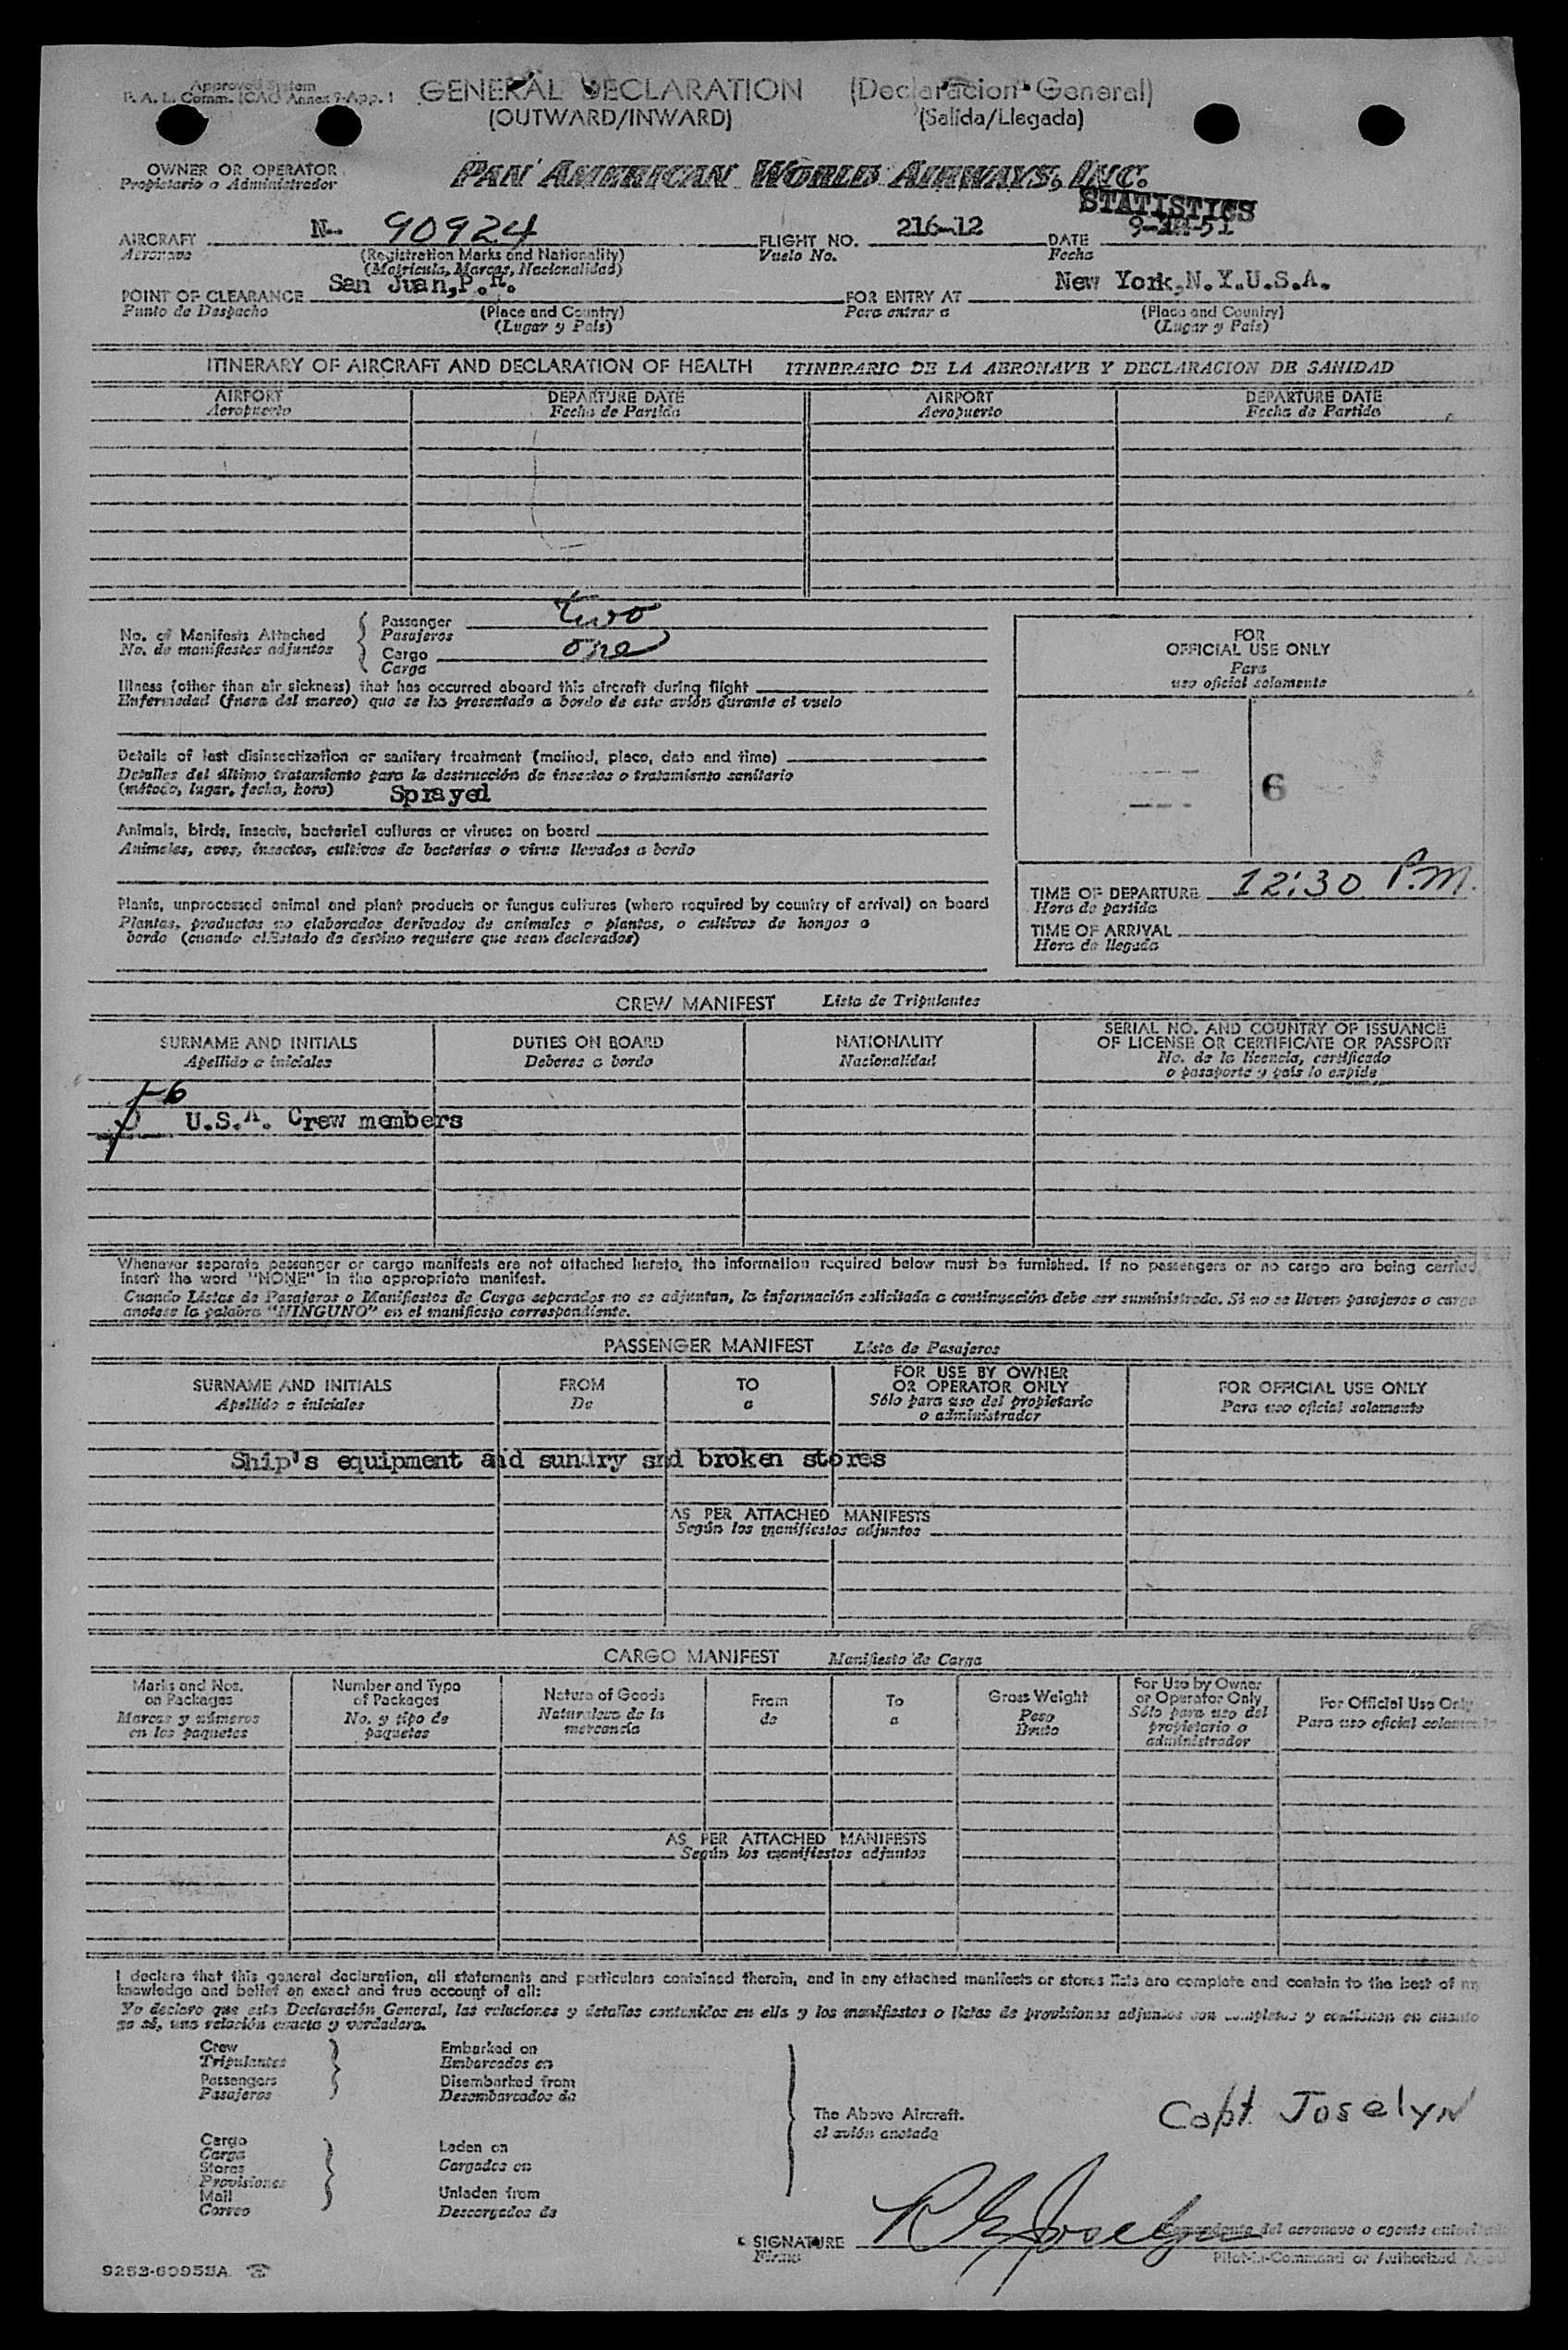 Approved System
P. A. L. Comm. ICAO Annex 9-App. 1
GENERAL DECLARATION (Declaracion General)
(OUTWARD/INWARD) (Salida/Llegada)
OWNER OR OPERATOR
Propietario o Administrador
PAN AMERICAN WORLD AIRWAYS, INC.
STATISTICS
AIRCRAFT N- 90924 FLIGHT NO. 216-12 DATE
Aeronave (Registration Marks and Nationality) Vuelo No. Fecha
(Matricula, Marcas, Nacionalidad)
POINT OF CLEARANCE San Juan,P.R. FOR ENTRY AT New York,N.Y.U.S.A.
Punto de Despacho (Place and Country) Para entrar a (Place and Country)
(Lugar y País) (Lugar y País)
ITINERARY OF AIRCRAFT AND DECLARATION OF HEALTH ITINERARIO DE LA AERONAVE Y DECLARACION DE SANIDAD
AIRPORT DEPARTURE DATE AIRPORT DEPARTURE DATE
Aeropuerto Fecha de Partida Aeropuerto Fecha de Partida
No. of Manifests Attached
No. de manifiestos adjuntos
Passenger two
Pasajeros
Cargo one
Carga
FOR
OFFICIAL USE ONLY
Para
uso oficial solamente
Illness (other than air sickness) that has occurred aboard this aircraft during flight
Enfermedad (fuera del mareo) que se ha presentado a bordo de este avión durante el vuelo
Details of last disinsectization or sanitary treatment (method, place, date and time)
Detalles del último tratamiento para la destrucción de insectos o tratamiento sanitario
(método, lugar, fecha, hora) Sprayed
6
Animals, birds, insects, bacterial cultures or viruses on board
Animales, aves, insectos, cultivos de bacterias o virus llevados a bordo
Plants, unprocessed animal and plant products or fungus cultures (where required by country of arrival) on board
Plantas, productos no elaborados derivados de animales o plantas, o cultivos de hongos a
bordo (cuando el Estado de destino requiere que sean declarados)
TIME OF DEPARTURE 12:30 P.M.
Hora de partida
TIME OF ARRIVAL
Hora de llegada
CREW MANIFEST Lista de Tripulantes
SURNAME AND INITIALS DUTIES ON BOARD NATIONALITY SERIAL NO. AND COUNTRY OF ISSUANCE
OF LICENSE OR CERTIFICATE OR PASSPORT
Apellido e iniciales Deberes a bordo Nacionalidad No. de la licencia, certificado
o pasaporte y país lo expide
6
U.S.A. Crew members
Whenever separate passenger or cargo manifests are not attached hereto, the information required below must be furnished. If no passengers or no cargo are being carried
insert the word "NONE" in the appropriate manifest.
Cuando Listas de Pasajeros o Manifiestos de Carga separados no se adjuntan, la información solicitada a continuación debe ser suministrada. Si no se llevan pasajeros o carga
anotese la palabra "NINGUNO" en el manifiesto correspondiente.
PASSENGER MANIFEST Lista de Pasajeros
SURNAME AND INITIALS FROM TO FOR USE BY OWNER
OR OPERATOR ONLY FOR OFFICIAL USE ONLY
Apellido e iniciales De a Sólo para uso del propietario
o administrador Para uso oficial solamente
Ship's equipment and sundry and broken stores
AS PER ATTACHED MANIFESTS
Según los manifiestos adjuntos
CARGO MANIFEST Manifiesto de Carga
Marks and Nos.
on Packages
Marcas y números
en los paquetes
Number and Type
of Packages
No. y tipo de
paquetes
Nature of Goods
Naturaleza de la
mercancía
From
de
To
a
Gross Weight
Peso
Bruto
For Use by Owner
or Operator Only
Sólo para uso del
propietario o
administrador
For Official Use Only
Para uso oficial solamente
AS PER ATTACHED MANIFESTS
Según los manifiestos adjuntos
I declare that this general declaration, all statements and particulars contained therein, and in any attached manifests or stores lists are complete and contain to the best of my
knowledge and belief an exact and true account of all:
Yo declaro que esta Declaración General, las relaciones y detalles contenidos en ella y los manifiestos o listas de provisiones adjuntos son completos y contienen en cuanto
yo sé, una relación exacta y verdadera.
Crew
Tripulantes
Passengers
Pasajeros
Embarked on
Embarcados en
Disembarked from
Desembarcados de
Cargo
Carga
Stores
Provisiones
Mail
Correo
Laden on
Cargados en
Unladen from
Descargados de
The Above Aircraft.
el avión anotado
Capt. Joselyn
SIGNATURE R E Joselyn
Firma
Comandante del aeronave o agente
Pilot-in-Command or Authorized
9252-60955A